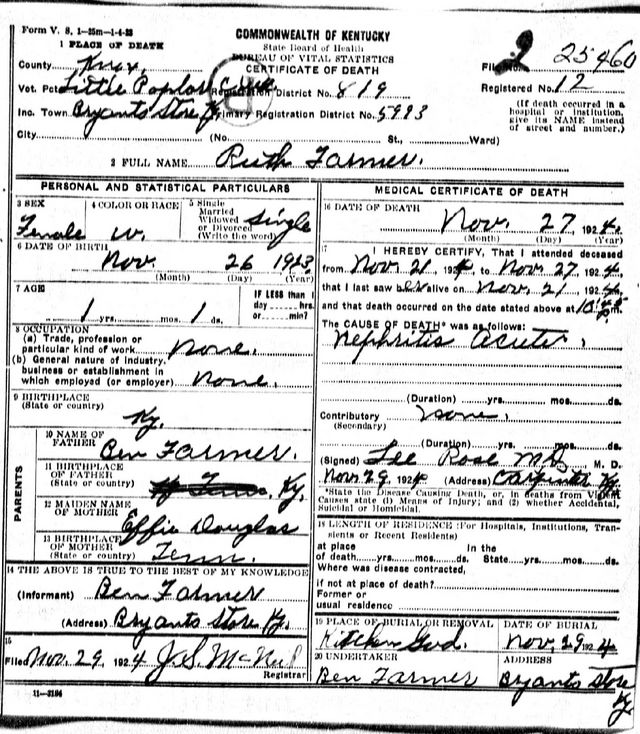 Form V. S. 1-25m-1-4-23
COMMONWEALTH OF KENTUCKY
State Board of Health
BUREAU OF VITAL STATISTICS
CERTIFICATE OF DEATH
1 PLACE OF DEATH
County Knox
File No. 25460
Vot. Pct. Little Poplar Creek Registration District No. 819
Registered No. 12
Inc. Town Bryants Store Ky Primary Registration District No. 5993
(If death occurred in a hospital or institution, give its NAME instead of street and number.)
City (No. St., Ward)
2 FULL NAME Ruth Farmer.
PERSONAL AND STATISTICAL PARTICULARS
3 SEX Female
4 COLOR OR RACE W.
5 Single Married Widowed or Divorced (Write the word) Single
6 DATE OF BIRTH
Nov. 26 1923
(Month) (Day) (Year)
7 AGE
1 yrs. mos. 1 ds.
IF LESS than 1 day hrs. or min?
8 OCCUPATION
(a) Trade, profession or
particular kind of work None.
(b) General nature of industry,
business or establishment in
which employed (or employer) None.
9 BIRTHPLACE
(State or country)
Ky.
PARENTS
10 NAME OF
FATHER Ben Farmer.
11 BIRTHPLACE
OF FATHER
(State or country) Ky.
12 MAIDEN NAME
OF MOTHER
Effie Douglas
13 BIRTHPLACE
OF MOTHER
(State or country) Tenn.
14 THE ABOVE IS TRUE TO THE BEST OF MY KNOWLEDGE
(Informant) Ben Farmer
(Address) Bryants Store Ky.
15
Filed Nov. 29. 1924 J. S. McNeil
Registrar
11-3184
MEDICAL CERTIFICATE OF DEATH
16 DATE OF DEATH
Nov. 27 1924.
(Month) (Day) (Year)
17 I HEREBY CERTIFY, That I attended deceased
from Nov. 21 1924 to Nov. 27 1924,
that I last saw her alive on Nov. 21 1924,
and that death occurred on the date stated above at
The CAUSE OF DEATH* was as follows:
Nephritis acute.
(Duration) yrs. mos. ds.
Contributory None.
(Secondary)
(Duration) yrs. mos. ds.
(Signed) Lee Rose MD M. D.
Nov. 29 1924 (Address) Carpenter Ky.
*State the Disease Causing Death, or, in deaths from Violent
Causes state (1) Means of Injury; and (2) whether Accidental,
Suicidal or Homicidal.
18 LENGTH OF RESIDENCE (For Hospitals, Institutions, Tran-
sients or Recent Residents)
at place In the
of death yrs. mos. ds. State yrs. mos. ds.
Where was disease contracted,
if not at place of death?
Former or
usual residence
19 PLACE OF BURIAL OR REMOVAL DATE OF BURIAL
Nov. 29 1924
20 UNDERTAKER ADDRESS
Ben Farmer Bryants Store Ky